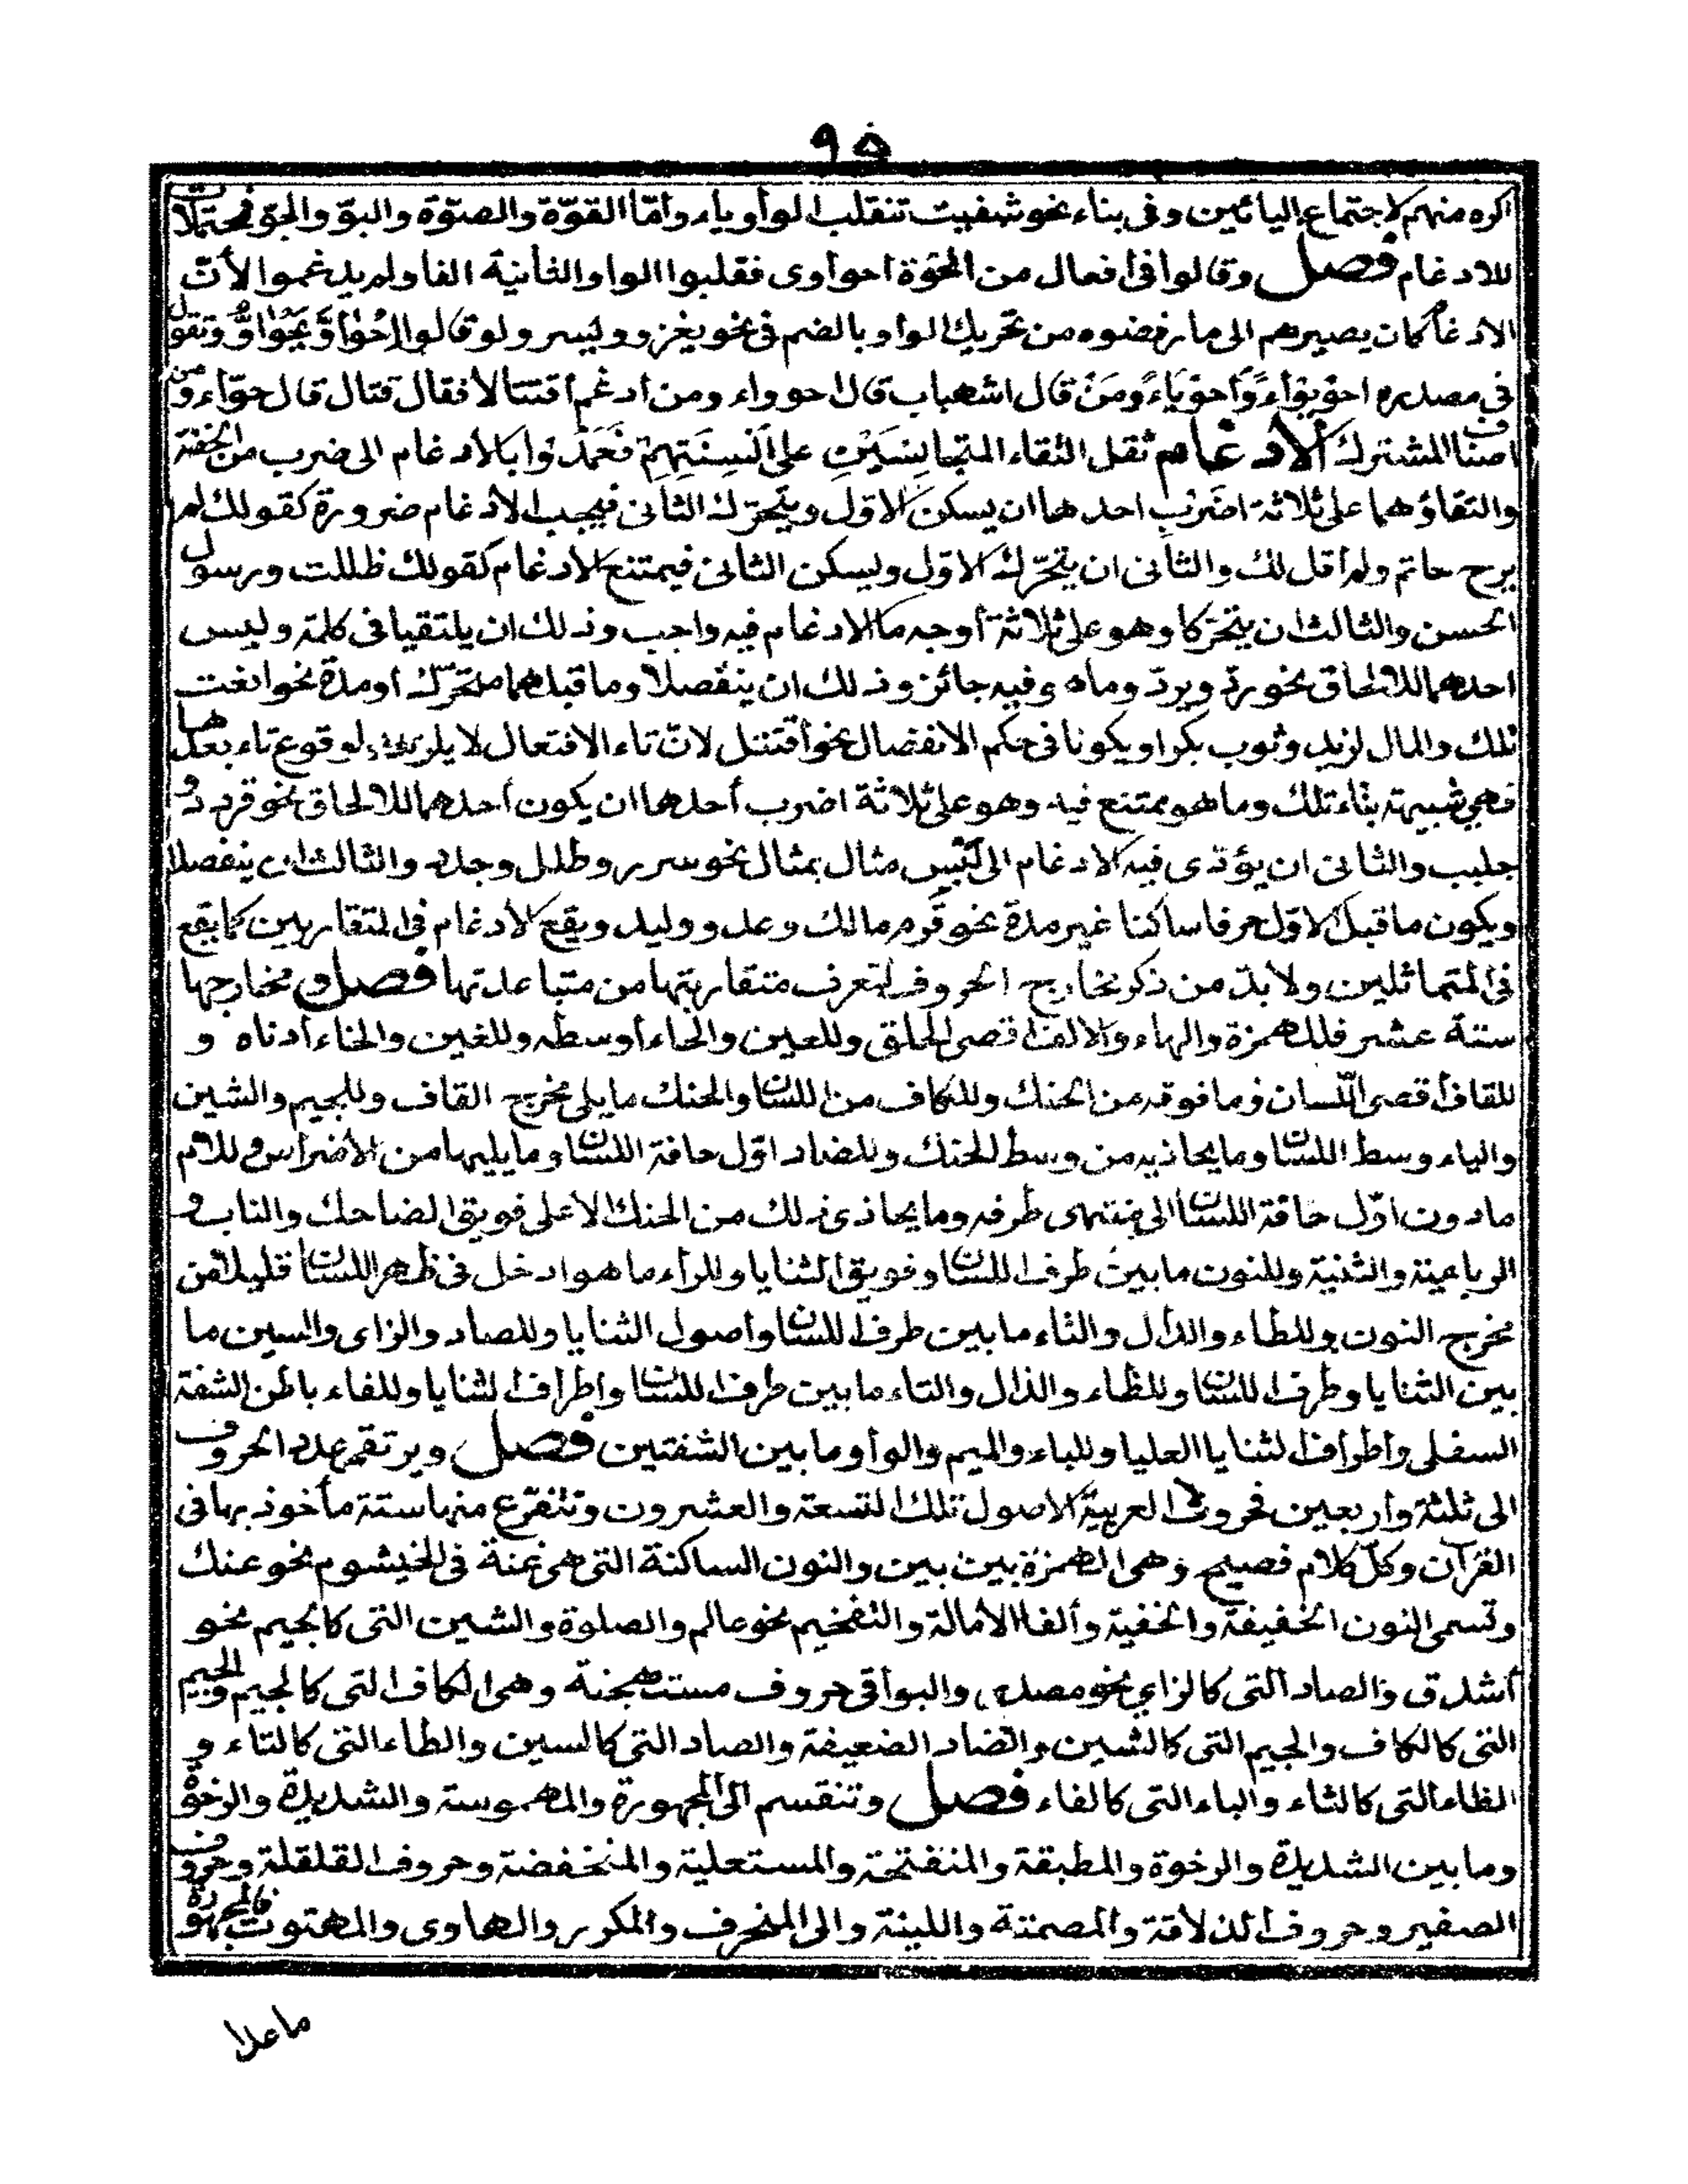 ٩٥
اكره منهم لاجتماع اليائين وفى بناء نحو شقيت تنقلب الواو ياء وأمّا القوّة والصوّة والبوّ والجوّ فمحتملات
للادغام فصل وقالوا فى أفعال من الحوّة احواوى فقلبوا الواو الثانية الفا ولم يدغموا لأنّ
الادغام كان يصيرهم الى ما رفضوه من تحريك الواو بالضم فى نحو يغزو ويسرو لو قالوا احْوَاوَّ يَحْوَاوُّ وتقول
فى مصدره احويواء واحوياء ومن قال اشهباب قال احوواء ومن أدغم اقتتالا فقال قتال قال حوّاء ومن
اصناف المشترك الأدغام ثقل التقاء المتجانسين على ألسنتهم فعمدوا بالأدغام الى ضرب من الخفة
والتقاؤهما على ثلاثة اضرب احدهما ان يسكن الاوّل ويتحرّك الثانى فيجب الأدغام ضرورة كقولك لم
يرح حاتم ولم أقل لك والثانى ان يتحرّك الاوّل ويسكن الثانى فيمتنع الأدغام كقولك ظللت ورسول
الحسن والثالث ان يتحرّكا وهو على ثلاثة أوجه ما الادغام فيه واجب وذلك ان يلتقيا فى كلمة وليس
احدهما للالحاق نحو ردّ ويردّ وما هو فيه جائز وذلك ان ينفصلا وما قبلهما متحرّك أو مدة نحو انعت
تلك والمال لزيد وثوب بكر او يكونا فى حكم الانفصال نحو أقتتل لانّ تاء الافتعال لا يلزمها وقوع تاء بعدها
فهى شبيهة بتاء تلك وما هو ممتنع فيه وهو على ثلاثة اضرب أحدهما ان يكون أحدهما للالحاق نحو قردد و
جلبب والثانى ان يؤدى فيه الادغام الى لَبْس مثال بمثال نحو سرر وطلل وجدد والثالث ان ينفصلا
ويكون ما قبل الاوّل حرفا ساكنا غير مدة نحو قرم مالك وعدو وليد ويقع الأدغام فى المتقاربين كما يقع
فى المتماثلين ولا بدّ من ذكر مخارج الحروف لتعرف متقاربتها من متباعدتها فصل و مخارجها
ستة عشر فللهمزة والهاء والالف اقصى الحلق وللعين والحاء أوسطه وللغين والخاء أدناه و
للقاف أقصى اللّسان وما فوقه من الحنك وللكاف من اللسان والحنك ما يلى مخرج القاف وللجيم والشين
والياء وسط اللسان وما يحاذيه من وسط الحنك وللضاد اوّل حافة اللسان وما يليها من الأضراس وللام
ما دون اوّل حافة اللسان الى منتهى طرفه وما يحاذى ذلك من الحنك الاعلى فويق الضاحك والناب و
الرباعية والثنية وللنون ما بين طرف اللسان وفويق الثنايا وللراء ما هو ادخل فى ظهر اللسان قليلا من
مخرج النون وللطاء والدال والتاء ما بين طرف اللسان وأصول الثنايا وللصاد والزاى والسين ما
بين الثنايا وطرف اللسان وللظاء والذال والثاء ما بين طرف اللسان واطراف الثنايا وللفاء باطن الشفة
السفلى وأطراف الثنايا العليا وللباء والميم والواو ما بين الشفتين فصل ويرتقى عدد الحروف
الى ثلثة وأربعين فحروف العربية الاصول تلك التسعة والعشرون وتتفرّع منها ستة مأخوذ بها فى
القرآن وكلّ كلام فصيح وهى الهمزة بين بين والنون الساكنة التى هى غنة فى الخيشوم نحو عنك
وتسمى النون الخفيفة والخفية وألفا الأمالة والتفخيم نحو عالم والصلوة والشين التى كالجيم نحو
أشدق والصاد التى كالزاى نحو مصدر والبواقى حروف مستهجنة وهى الكاف التى كالجيم والجيم
التى كالكاف والجيم التى كالشين والضاد الضعيفة والصاد التى كالسين والطاء التى كالتاء و
الظاء التى كالثاء والباء التى كالفاء فصل وتنقسم الى المجهورة والمهموسة والشديدة والرخوة
وما بين الشديدة والرخوة والمطبقة والمنفتحة والمستعلية والمنخفضة وحروف القلقلة وحروف
الصفير وحروف الذلاقة والمصمتة واللينة والى المنحرف والمكرر والهاوى والمهتوت فالمجهورة
ماعدا